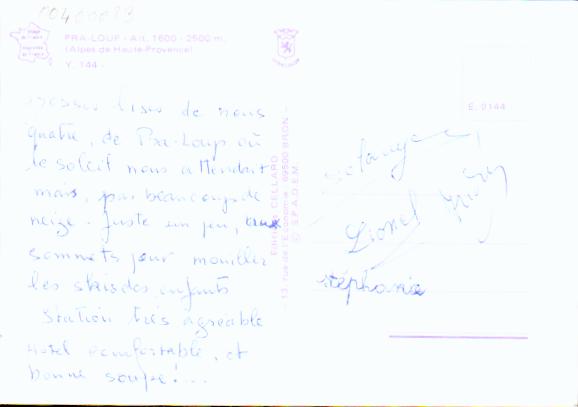 00400083
PRA-LOUP - Alt. 1600 - 2500 m.
(Alpes de Haute-Provence)
Y. 144 -
E. 0144
Grosses bises de nous
quatre, de Pra-Loup où
le soleil nous attendait
mais, pas beaucoup de
neige - Juste un peu, aux
sommets pour mouiller
les skis des enfants
Station très agréable
Hotel confortable, et
bonne soupe!...
Editions CELLARD
13, rue de l'Economie - 69500 BRON -
© S.P.A.D.E.M.
Lionel
stéphanie